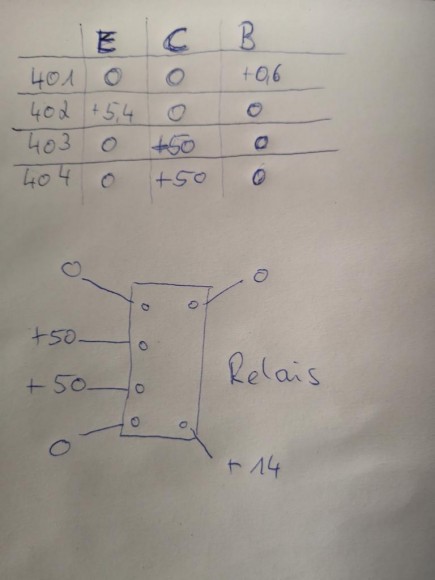 E C B
401 0 0 +0,6
402 +5,4 0 0
403 0 +50 0
404 0 +50 0
0 0
+50
+50 Relais
0 +14